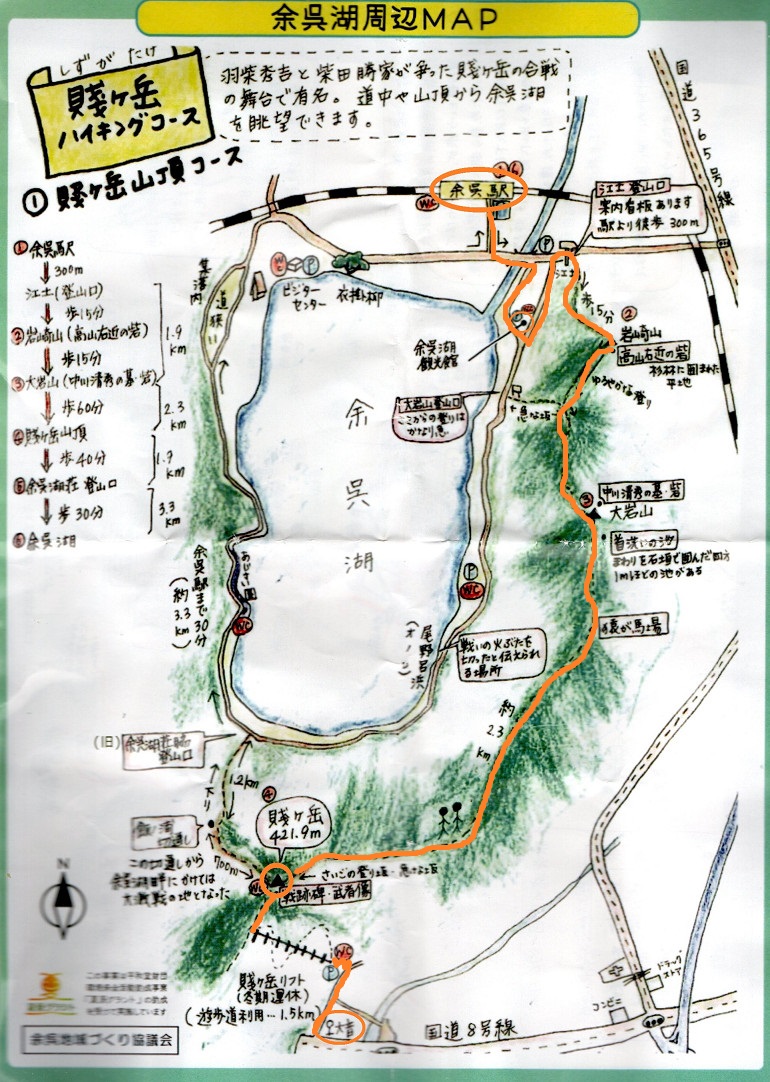 余呉湖周辺MAP
しずがたけ
賤ヶ岳
ハイキングコース
羽柴秀吉と柴田勝家が争った賤ヶ岳の合戦
の舞台で有名。道中や山頂から余呉湖
を眺望できます。
① 賤ヶ岳山頂コース
①余呉駅
300m
江土(登山口)
歩15分
②岩崎山(高山右近の砦)
歩15分
③大岩山(中川清秀の墓・砦)
歩60分
④賤ヶ岳山頂
歩40分
⑤余呉湖荘 登山口
歩30分
⑥余呉湖
1.9
km
2.3
km
1.7
km
3.3
km
国道365号線
余呉駅
WC
江土登山口
案内看板あります
駅より徒歩300m
P
江土
歩15分
②
岩崎山
高山右近の砦
杉林に囲まれた
平地
ゆるやかな登り
集落内
道狭い
WC
P
ビジター
センター
衣掛柳
余呉湖
観光館
大岩山登山口
ここからの登りは
かなり急
急な坂
余呉湖
③
中川清秀の墓・砦
大岩山
首洗いの池
まわりを石垣で囲んだ四方
1mほどの池がある
猿が馬場
あじさい園
WC
余呉駅まで30分
(約3.3km)
P
WC
尾野呂浜
(オノロ)
戦いの火ぶたを
切ったと伝えられ
る場所
約
2.3
km
(旧)
余呉湖荘脇
登山口
1.2km
下り
飯浦
切通し
この切通しから
余呉湖畔にかけては
大激戦の地となった
700m
④
賤ヶ岳
421.9m
さいごの登り坂・急な坂
WC
戦跡碑・武者像
N
WC
P
賤ヶ岳リフト
(冬期運休)
(遊歩道利用…1.5km)
大音
国道8号線
コンビニ
ドラッグ
ストア
この事業は平和堂財団
環境保全活動助成事業
「夏原グラント」の助成
を受けて実施しています
夏原グラント
余呉地域づくり協議会